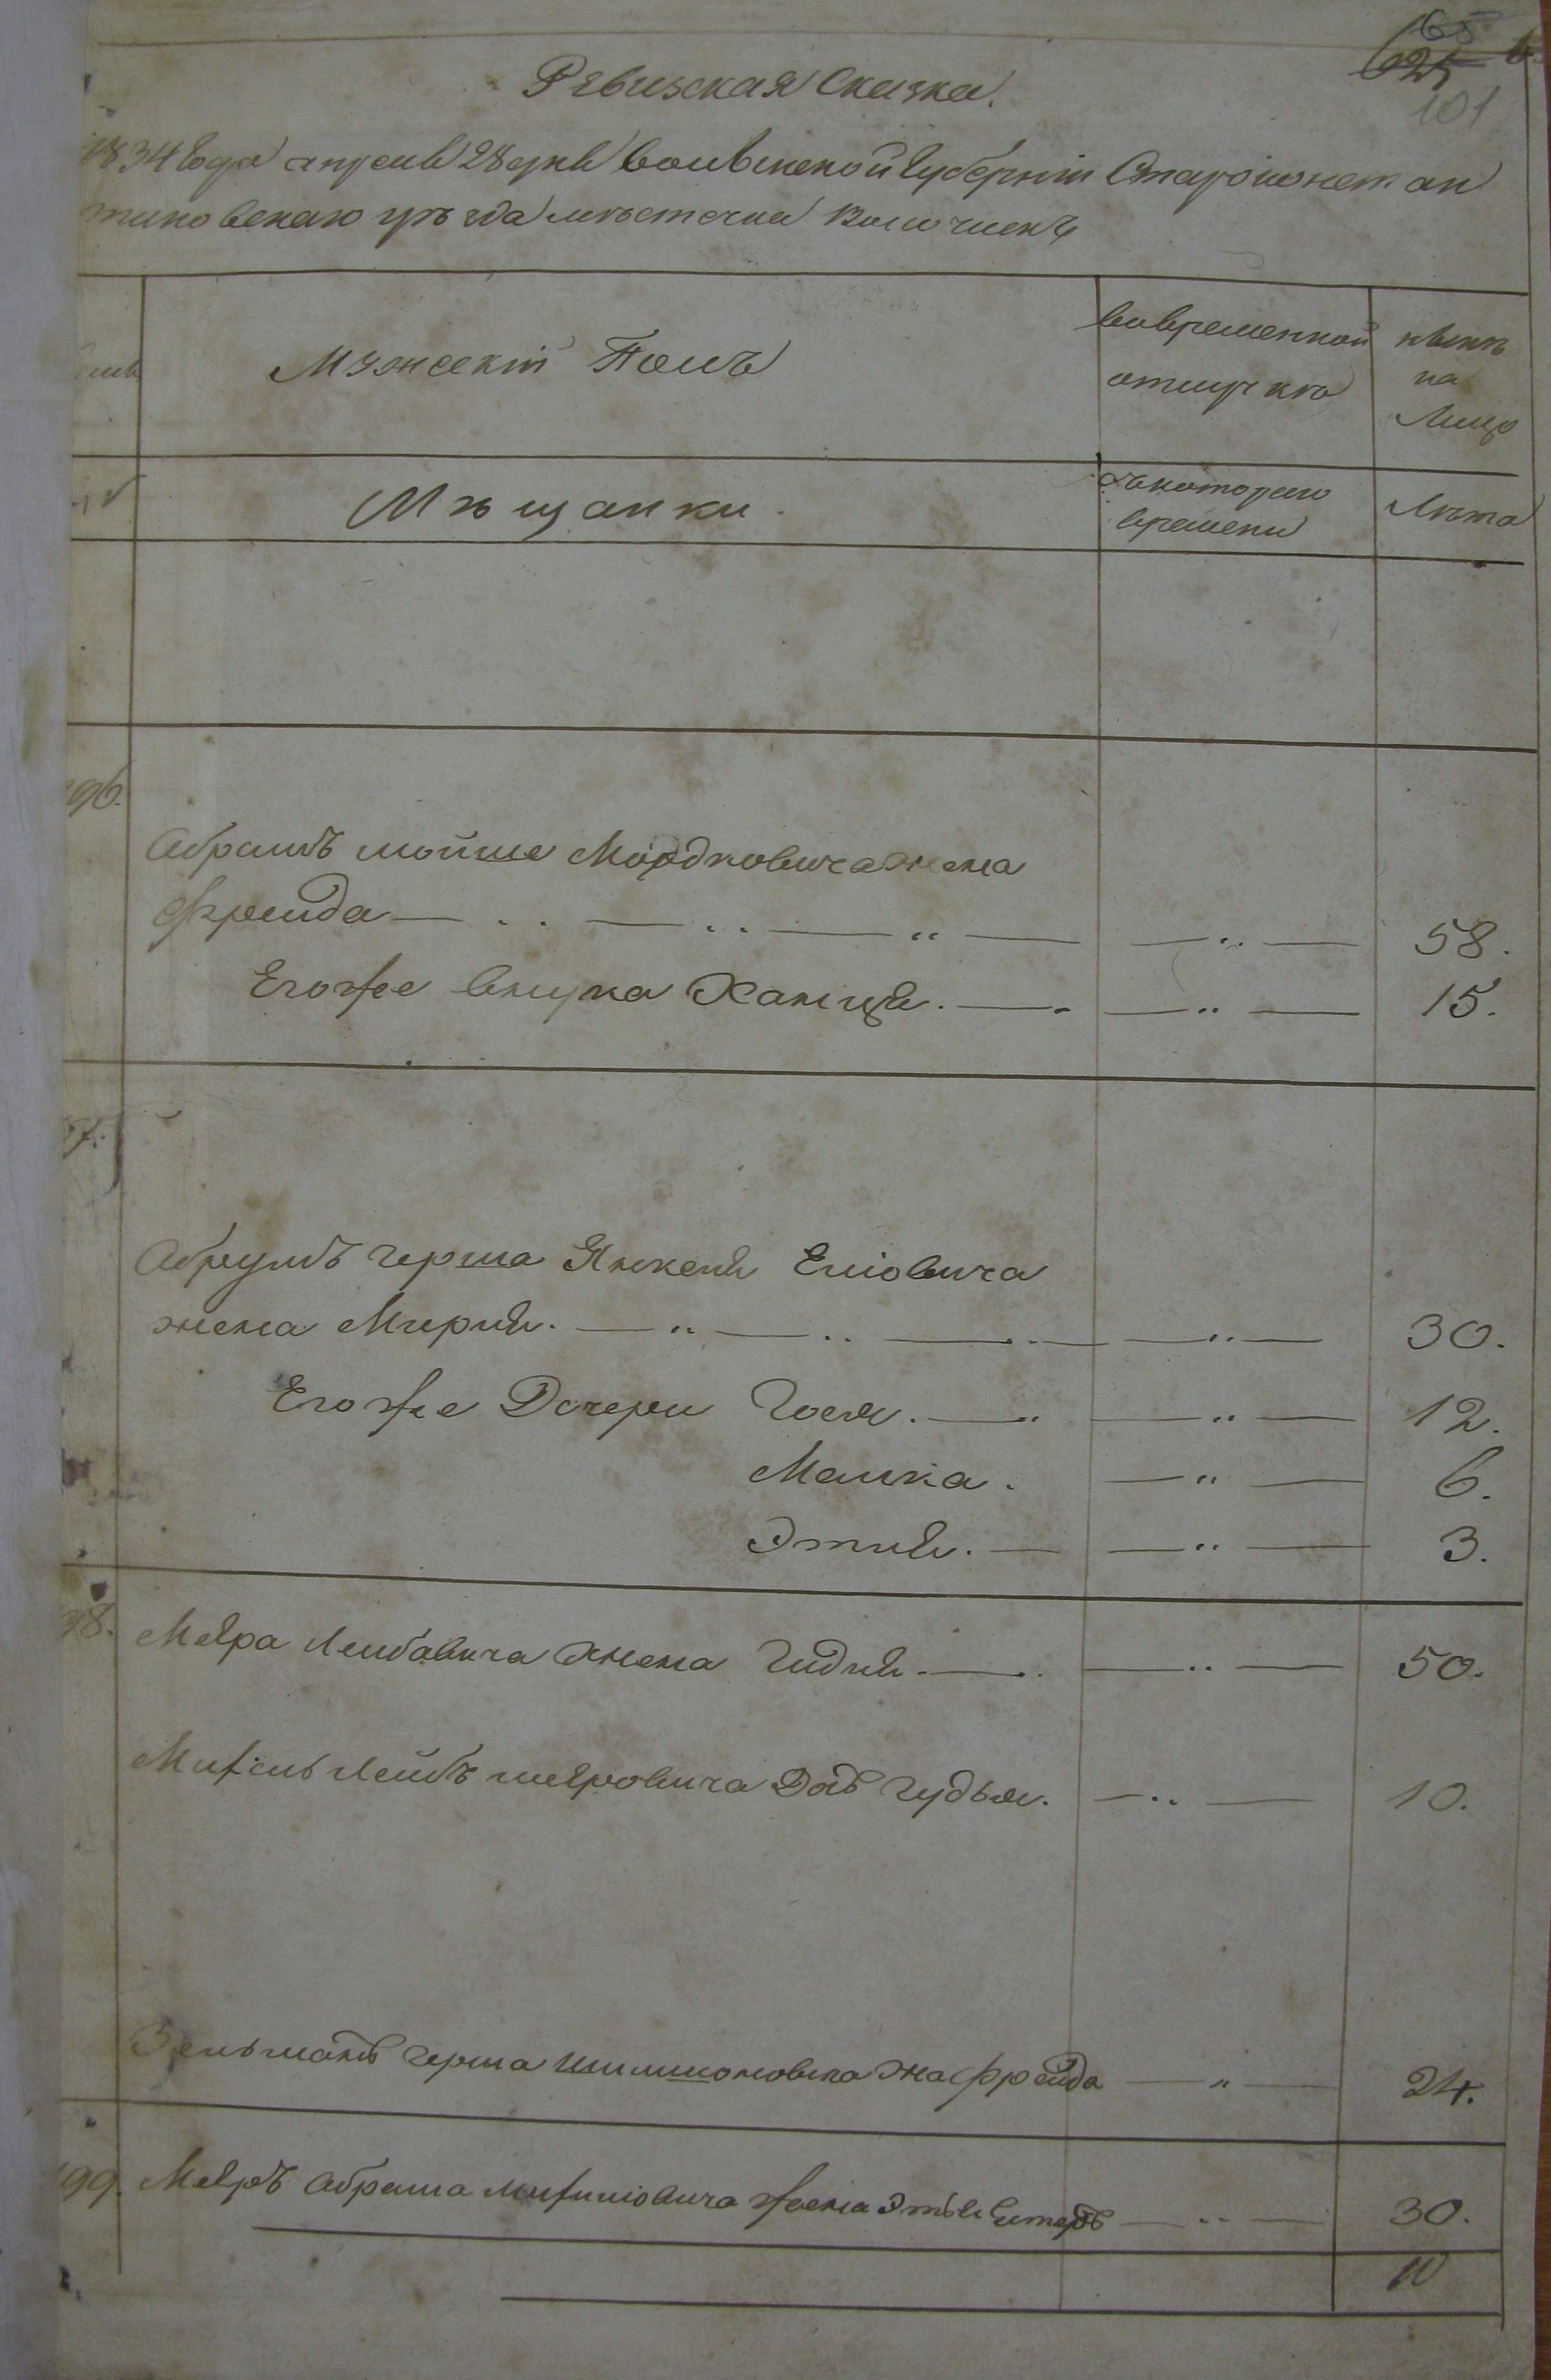 65
625
101
Ревизская Сказка.
1834 Года апреля 28 дня Волынской Губерніи Староконстан
тиновскаго уѣзда мѣстечка Волочискъ
Мужескій Полъ
вовременной
отлучкѣ
нынѣ
на
Лицо
Мѣщанки.
съкотораго
времени
Лѣта
96.
Абрамъ мойше Мордковича жена
Фрейда 58.
Егоже внука Ханця. 15.
97.
Абрумъ герша Янкеля Еліовича
жена Мирля. 30.
Егоже Дочери Гося. 12.
Малка. 6.
Этля. 3.
98. Меѣра Лейбовича жена Гидля 50.
Михель Лейбъ меѣровича Дочь Гудья. 10.
Зельманъ герша Шимшоновича жена Фрейда 24.
99. Меѣръ Абрама Михилювича жена Этля Естеръ 30.
10